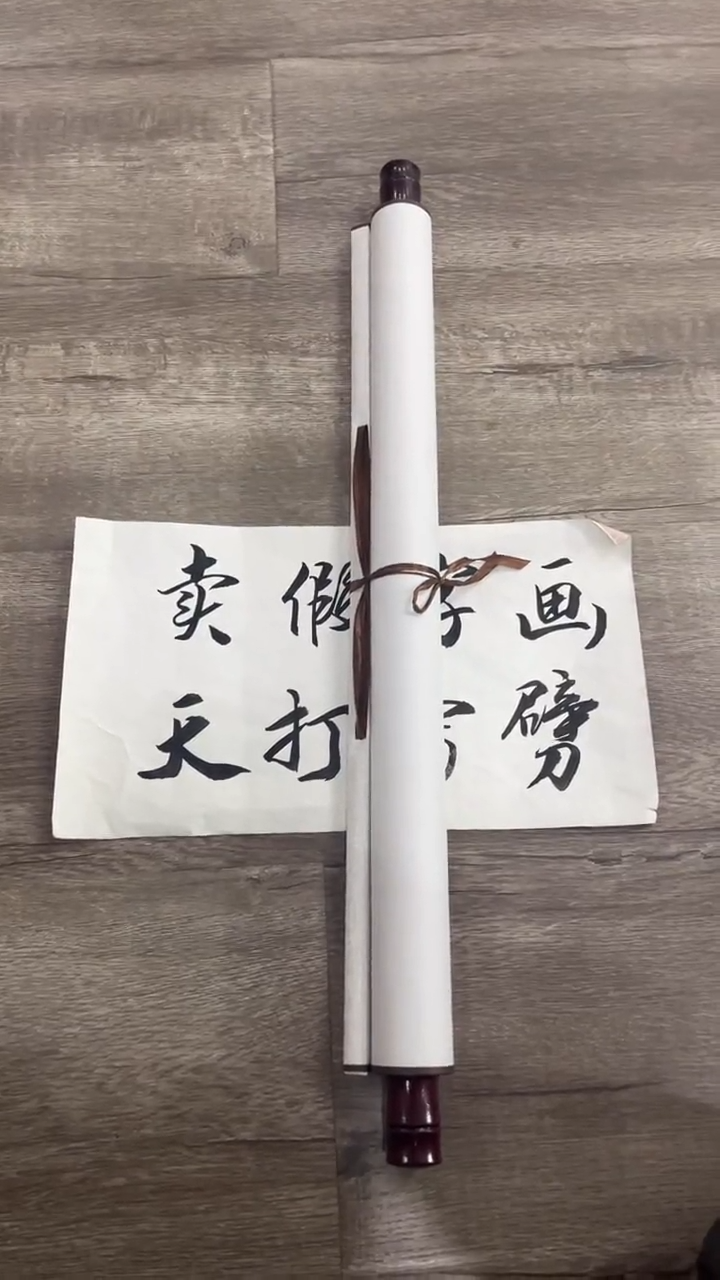 卖假字画
天打劈